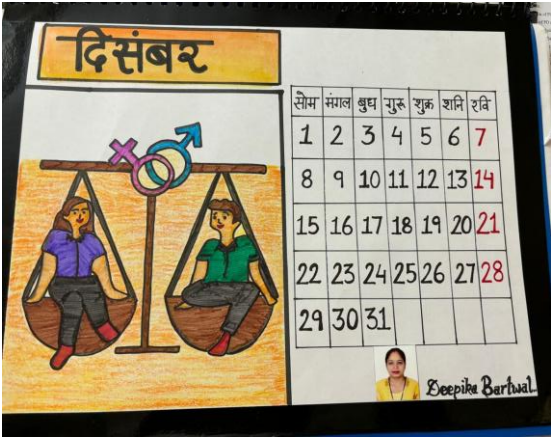 दिसंबर
सोम मंगल बुध गुरू शुक्र शनि रवि
1 2 3 4 5 6 7
8 9 10 11 12 13 14
15 16 17 18 19 20 21
22 23 24 25 26 27 28
29 30 31
Deepika Bartwal